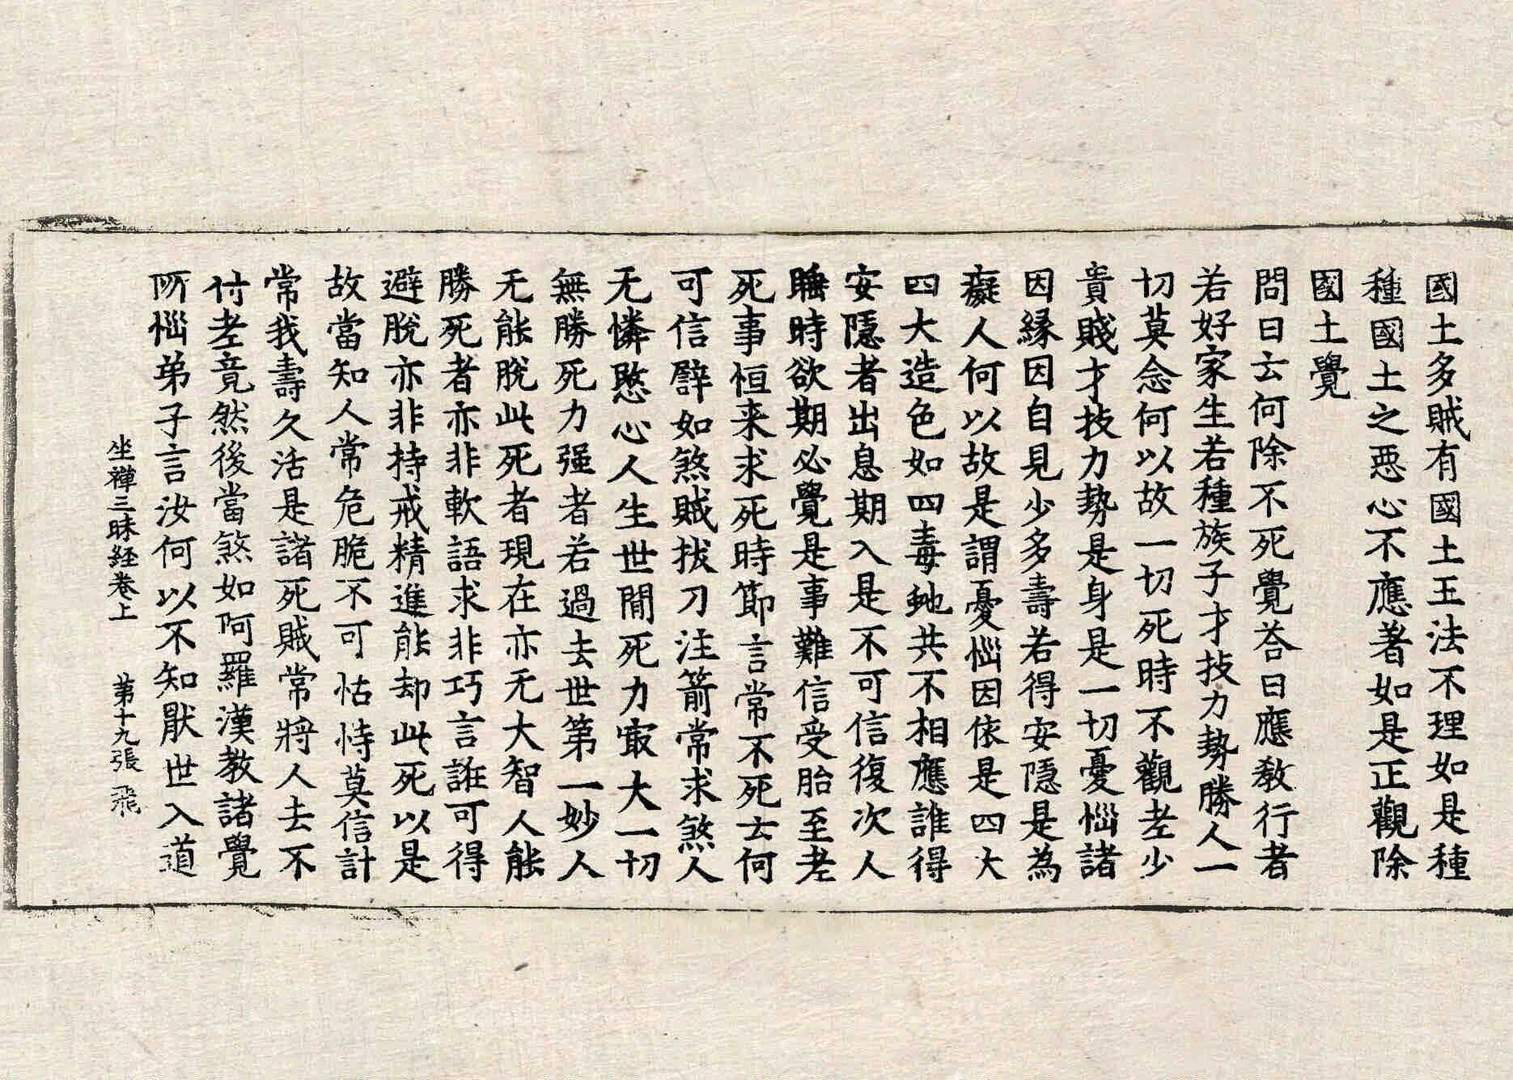 國土多賊有國土王法不理如是種
種國土之惡心不應著如是正觀除
國土覺
問曰云何除不死覺荅曰應教行者
若好家生若種族子才技力勢勝人一
切莫念何以故一切死時不觀老少
貴賤才技力勢是身是一切憂惱諸
因縁因自見少多壽若得安隱是為
癡人何以故是謂憂惱因依是四大
四大造色如四毒虵共不相應誰得
安隱者出息期入是不可信復次人
睡時欲期必覺是事難信受胎至老
死事恒来求死時節言常不死云何
可信譬如煞賊拔刀注箭常求煞人
无憐愍心人生世間死力㝡大一切
無勝死力强者若過去世第一妙人
无能脫此死者現在亦无大智人能
勝死者亦非軟語求非巧言誑可得
避脫亦非持戒精進能却此死以是
故當知人常危脆不可怙恃莫信計
常我壽久活是諸死賊常將人去不
付老竟然後當煞如阿羅漢教諸覺
所惱弟子言汝何以不知猒世入道
坐禪三昧経卷上　第十九張　飛